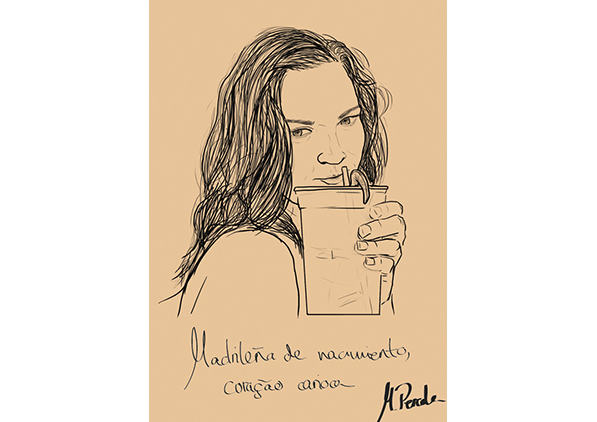 Madrileña de nacimiento,
coração carioca